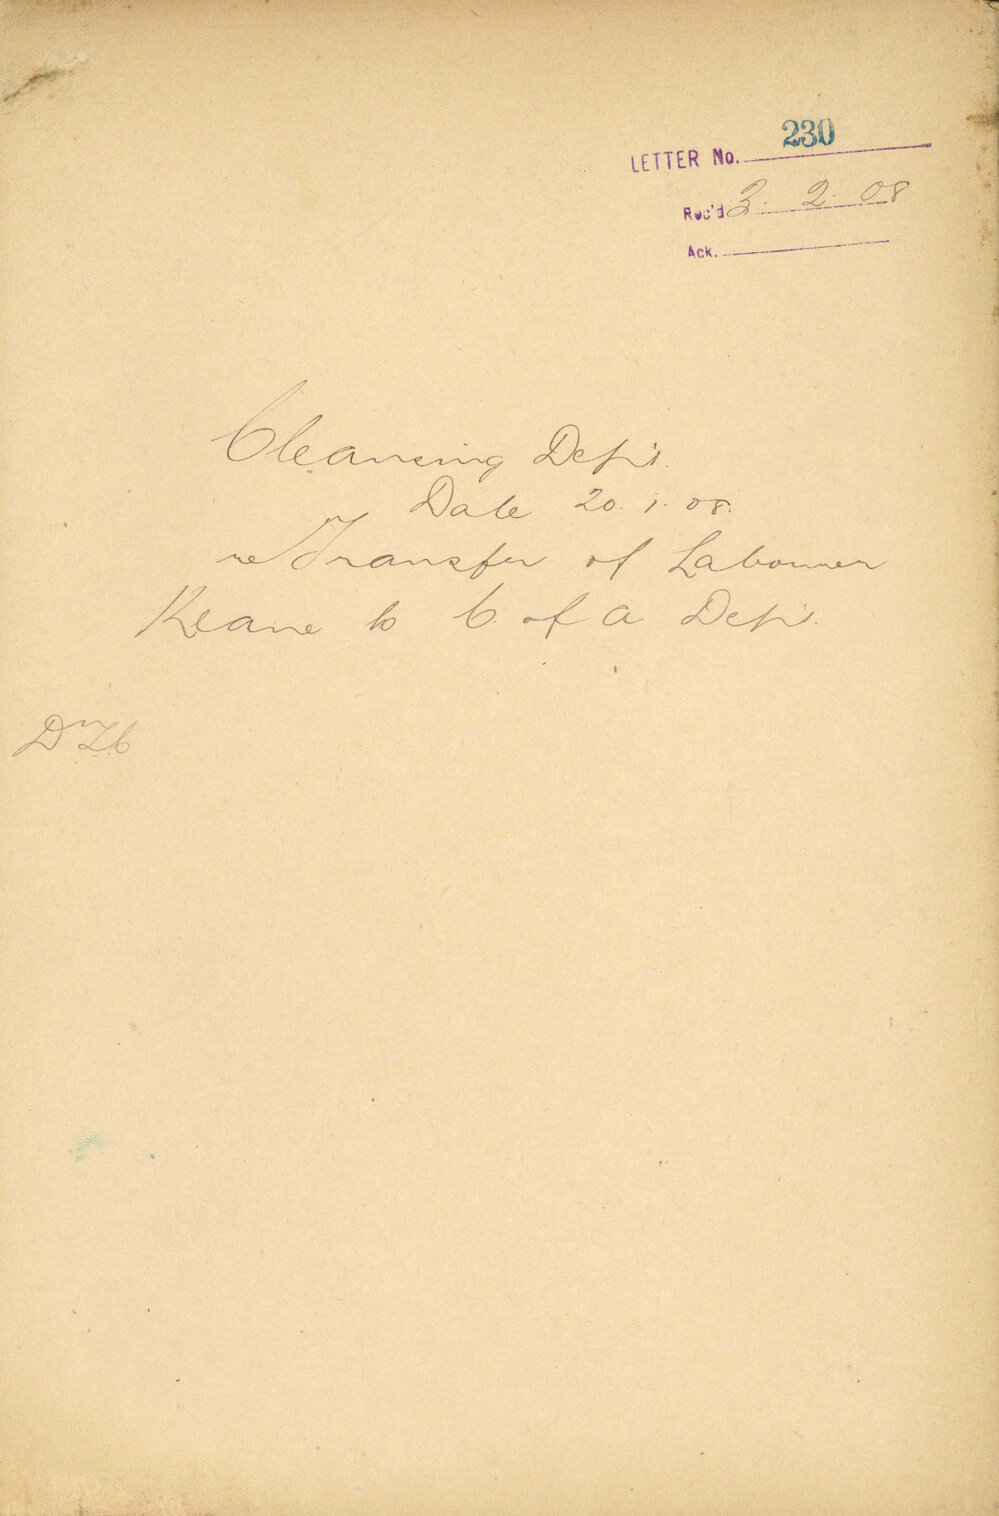 230
LETTER No.
Rec'd 3. 2. 08
Ack.
Cleansing Dept.
Date 20. 1. 08.
re Transfer of Labourer
Keane to C. of A Dept.